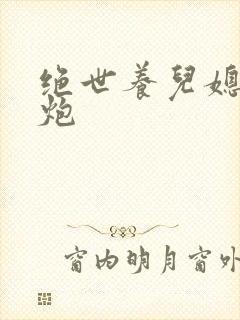 绝世养兒媳
炮
窗内明月窗外